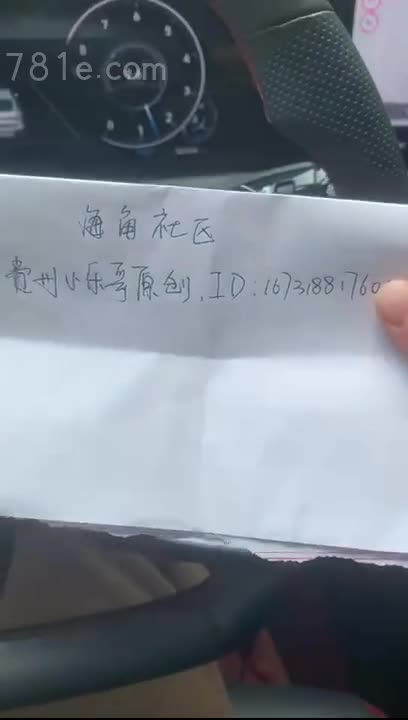 781e.com
7
6
5
4
3
2
1
0
海角社区
贵州小乐哥原创,ID:1673188176